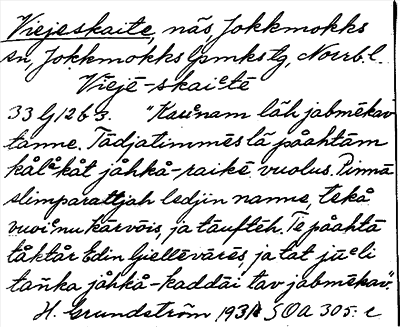 Viejeskaite, näs, Jokkmokks
sn, Jokkmokks lpmkstg, Norrb. l.
Viejē-skaiᵉtē
33 G 12 b 3. "Kau°nam läh jabmēkav
tanne. Tādjatimmēs lä påahtām
kålåkåt jåhkå-raikē vuolus. Pinnā
slimparattjah ledjin nanne, tekå
vuoi°nu kārvōis, ja tāuftēh. Tē påahtā
tåktår Edin Gjellēvārēs, ja tat jūᵉli
tańka jåhkå-kaddāi tav jabmēkav."
H. Grundström 1931 SOA 305: c